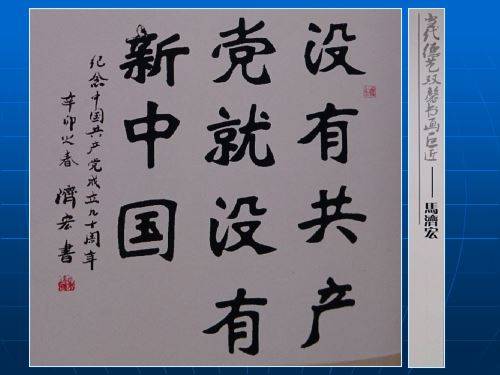 没有共产
党就没有
新中国
纪念中国共产党成立九十周年
辛卯之春 濟宏書
当代德艺双馨书画巨匠——馬濟宏